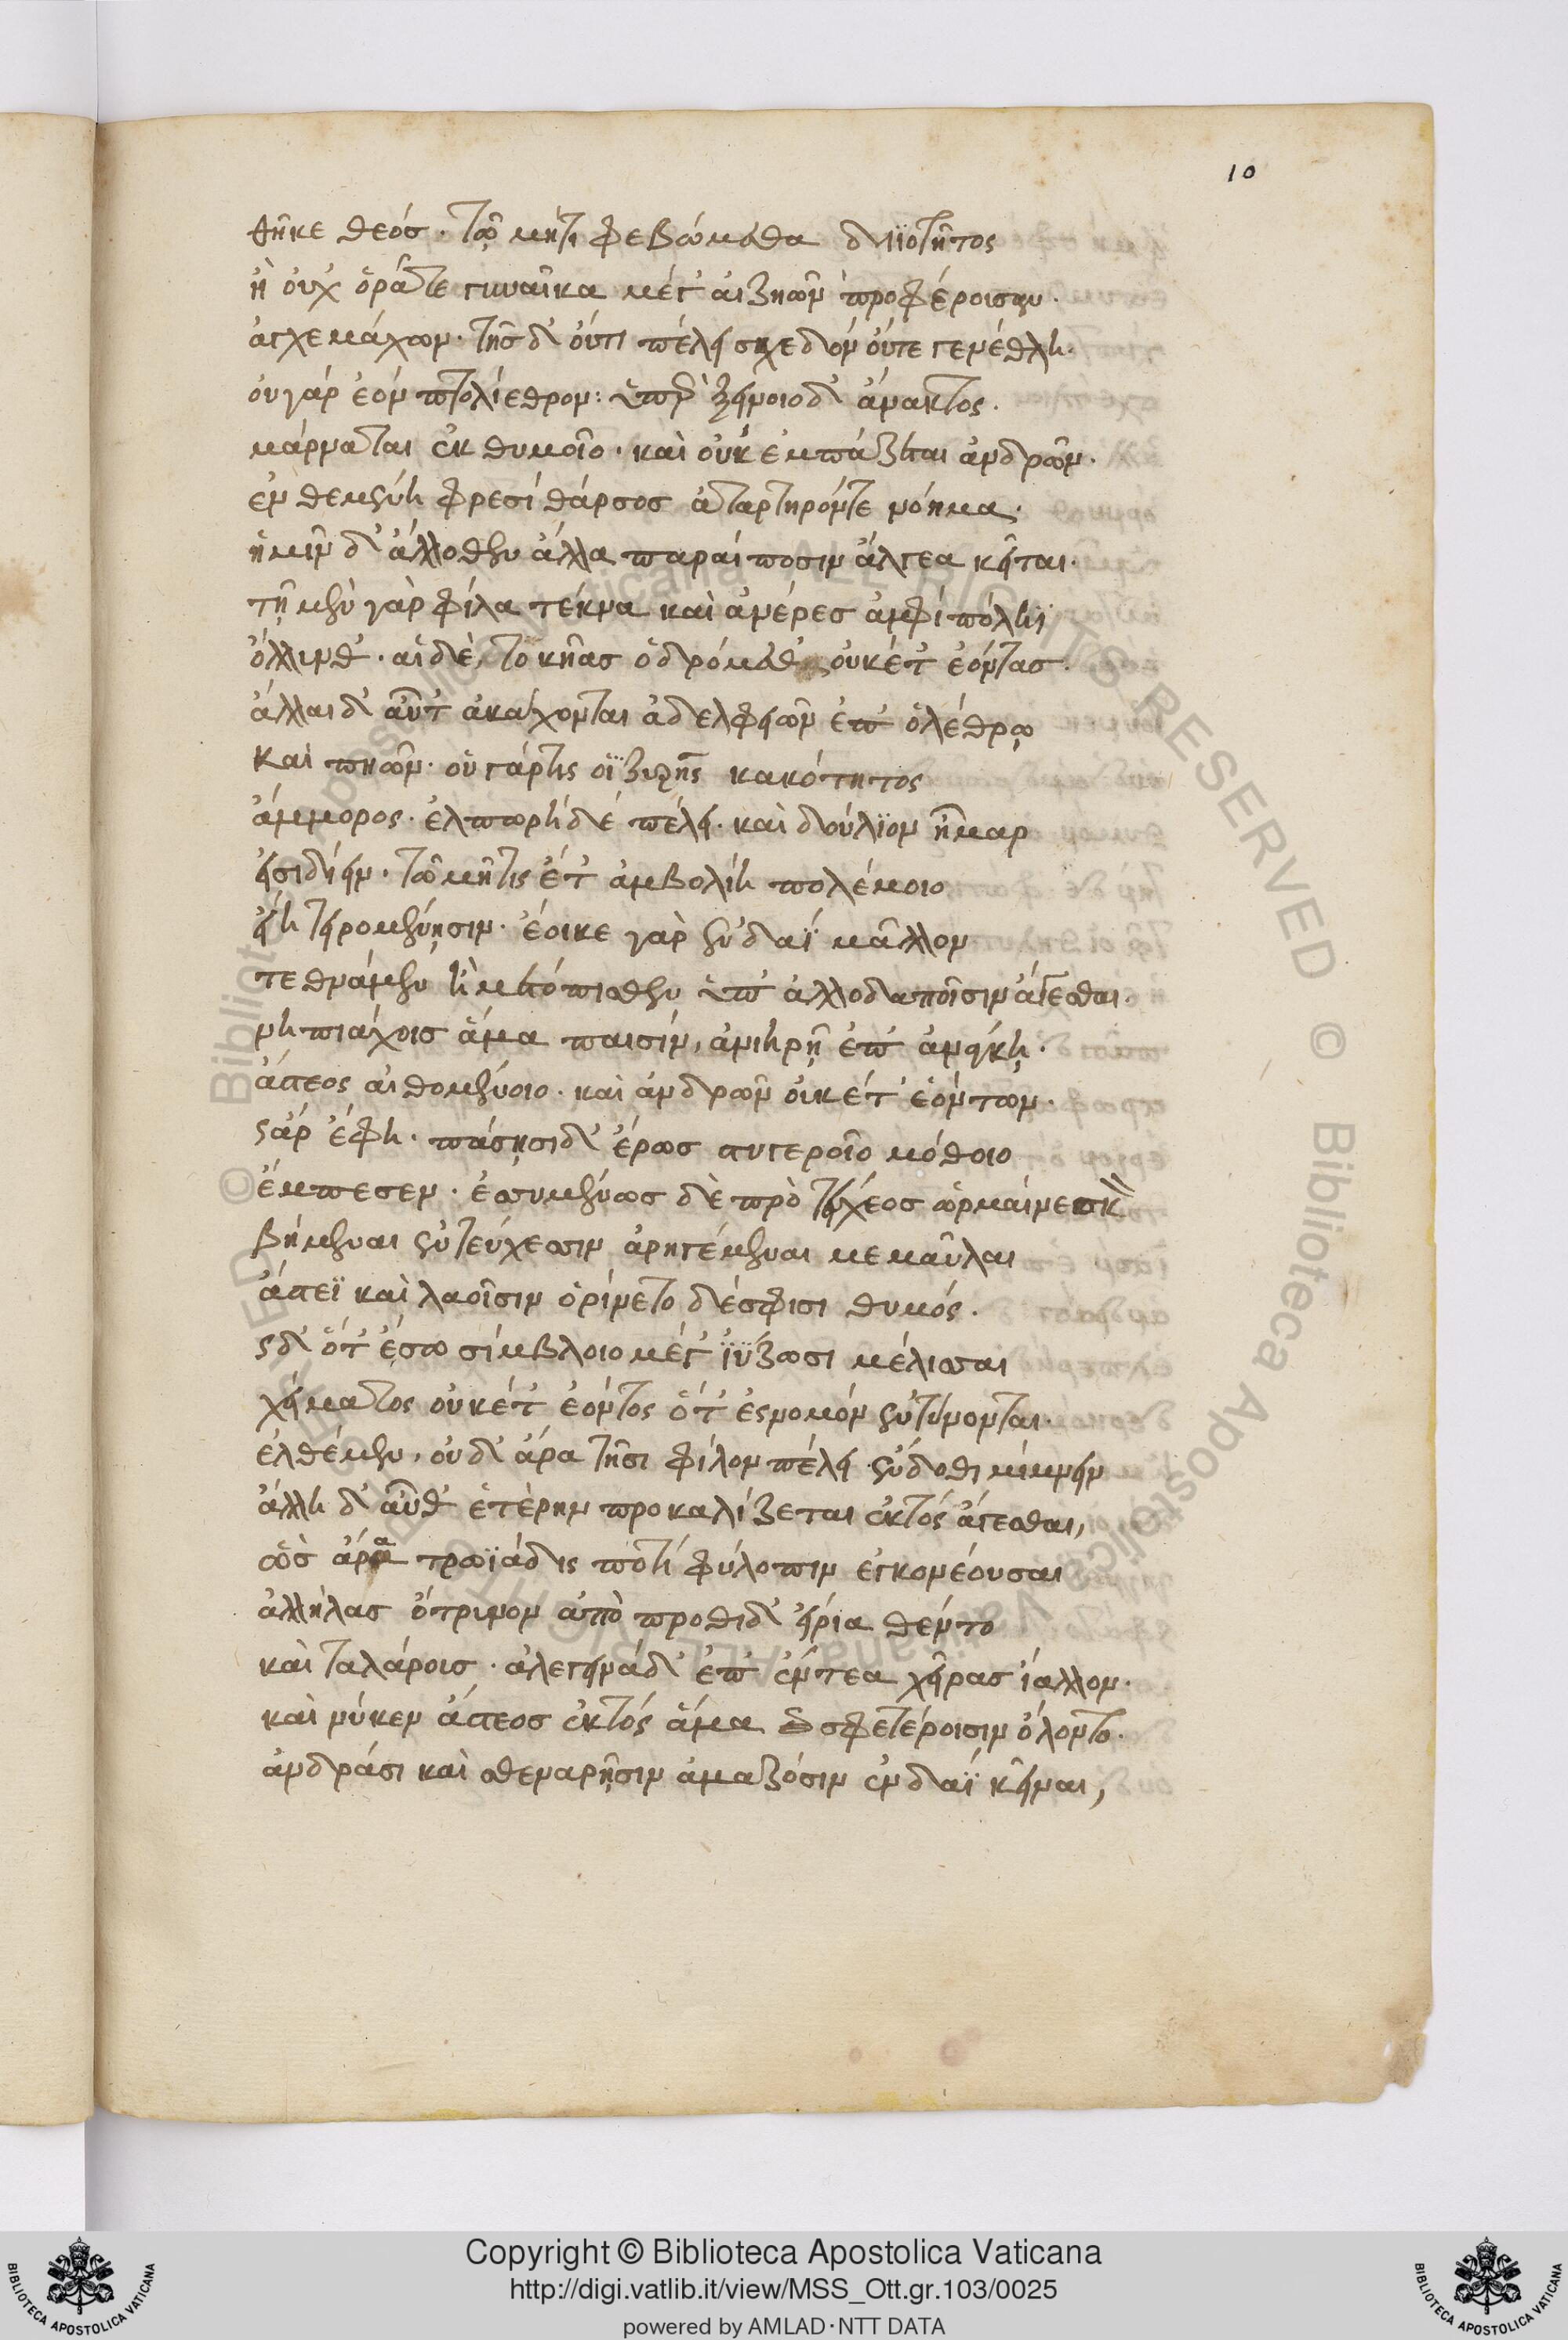 10
θῆκε θεός. τῷ μήτι φεβώμεθα δηϊοτῆτος
ἢ οὐχ ὁράατε γυναῖκα μέγ' αἰζηῶν προφέρουσαν.
ἀγχεμάχων. τῆς δ' οὔτι πέλει σχεδὸν οὔτε γενέθλη.
οὐ γάρ ἑὸν πτολίεθρον: ὑπὲρ ξείνοιο δ' ἄνακτος.
μάρναται ἐκ θυμοῖο. καὶ οὐκ ἐμπάζεται ἀνδρῶν.
ἐνθεμένη φρεσί θάρσος ἀταρτηρόντε νόημα.
ἡμῖν δ' ἄλλοθεν ἄλλα παραί ποσιν ἄλγεα κεῖται.
τῇ μὲν γὰρ φίλα τέκνα καὶ ἀνέρες ἀμφὶ πόληϊ
ὄλλυνθ'. αἱ δὲ, τοκῆας ὀδρόμεθ' οὐκέτ' ἐόντας.
ἄλλαι δ' αὖτ' ἀκάχονται ἀδελφειῶν ἐπ' ὀλέθρῳ
καὶ πηῶν. οὐ γάρ τις ὀϊζυρῆς κακότητος
ἄμμορος. ἐλπωρὴ δέ πέλει. καὶ δούλιον ἦμαρ
εἰσιδέειν. τῶ μῆτις ἔτ' ἀμβολίη πολέμοιο
εἴη τειρομένῃσιν. ἔοικε γὰρ ἐν δαῒ μᾶλλον
τεθνάμεν ἢ μετόπισθεν ὑπ' ἀλλοδαποῖσιν ἄγεσθαι.
νηπιάχοις ἅμα παισίν, ἀνιηρῇ ἐπ' ἀνάγκῃ.
ἄστεος αἰθομένοιο. καὶ ἀνδρῶν οὐκέτ' ἐόντων.
ὣς ἄρ' ἔφη. πάσῃσι δ' ἔρως στυγεροῖο μόθοιο
ἔμπεσεν. ἐσσυμένως δὲ πρὸ τείχεος ὡρμαίνεσκ
βήμεναι ἐν τεύχεσσιν ἀρηγέμεναι μεμαυῖαι
ἄστεϊ καὶ λαοῖσιν ὀρίνετο δέ σφισι θυμός.
ὡς δ' ὅτ' ἔσω σίμβλοιο μέγ' ἰΰζωσι μέλισσαι
χείματος οὐκέτ' ἐόντος ὅτ' ἐς νομὸν ἐντύνονται.
ἐλθέμεν, οὐδ' ἄρα τῇσι φίλον πέλει ἔνδοθι μίμνειν
ἄλλη δ' αὖθ' ἑτέρην προκαλίζεται ἐκτός ἄγεσθαι,
ὣς ἄρα τρωϊάδες ποτί φύλοπιν ἐγκονέουσαι
ἀλλήλας ὄτρυνον ἀπὸ προθι δ' εἴρια θέντο
καὶ ταλάρους. ἀλεγεινὰ δ' ἐπ' ἔντεα χεῖρας ἴαλλον.
καί νύκεν ἄστεος ἐκτός ἅμα σφετέροισιν ὄλοντο.
ἀνδράσι καὶ σθεναρῇσιν ἀμαζόσιν ἐν δαῒ κεῖναι,
Copyright © Biblioteca Apostolica Vaticana
http://digi.vatlib.it/view/MSS_Ott.gr.103/0025
powered by AMLAD·NTT DATA